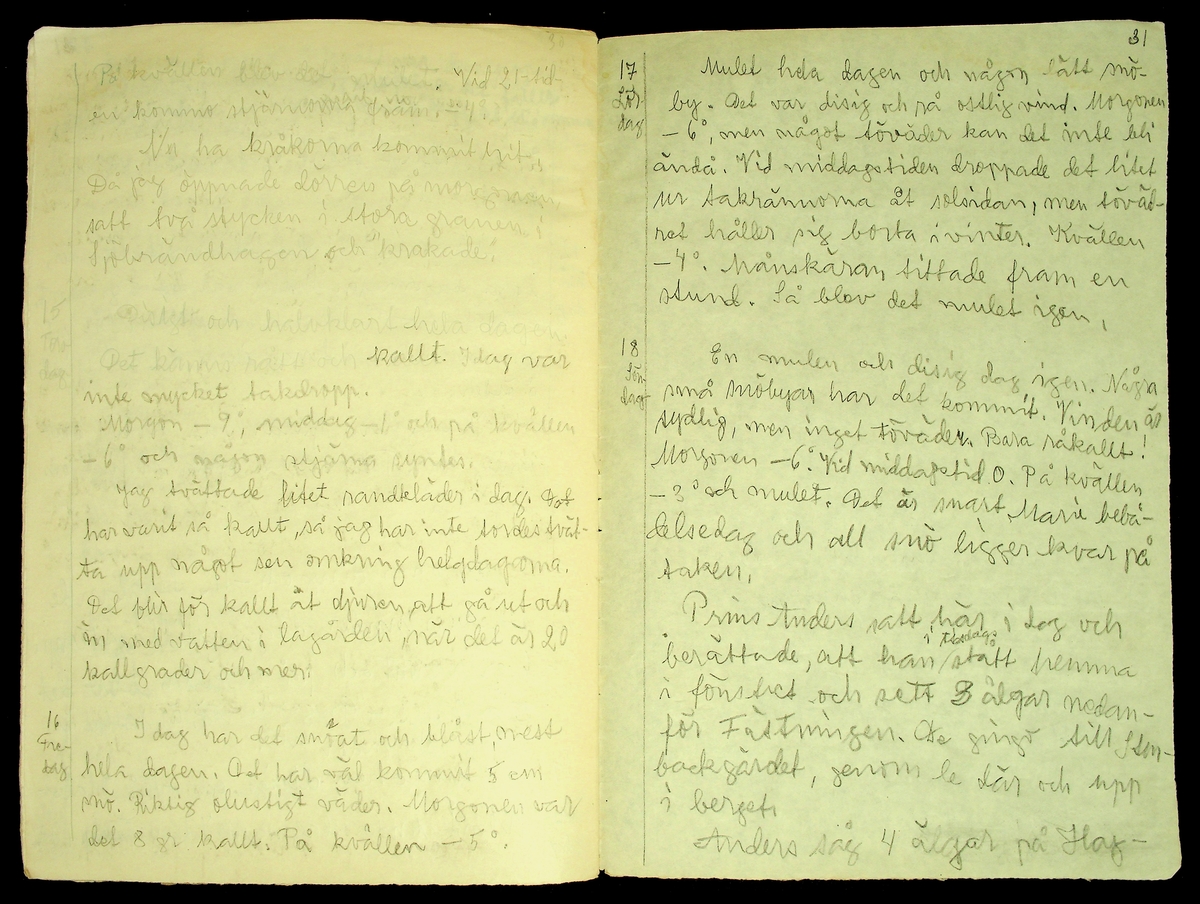 30
På kvällen blev det Vid 21-tid-
en kommo stjärnorna fram. -4°.
Nu ha kråkorna kommit hit.
Då jag öppnade dörren på morgonen,
satt två stycken i stora granen i
Sjöbrändhagen och "krakade".
15
Tors-
dag
Disigt och halvklart hela dagen.
Det kännes rått och kallt. Idag var
inte mycket takdropp.
Morgon -9, middag -1° och på kvällen
-6° och någon stjärna syntes.
Jag tvättade litet randkläder i dag. Det
har varit så kallt, så jag har inte tordes tvät-
ta upp något sen omkring helgdagarna.
Det blir för kallt åt djuren, att gå ut och
in med vatten i lagården, när det är 20
kallgrader och mer.
16
Fre-
dag
Idag har det snöat och blåst, mest
hela dagen. Det har väl kommit 5 cm
snö. Riktig olustigt väder. Morgonen var
det 8 gr kallt. På kvällen -5°.
31
17
Lör-
dag
Mulet hela dagen och någon lätt snö-
by. Det var disig och rå ostlig vind. Morgonen
-6°, men något töväder kan det inte bli
ändå. Vid middagstiden droppade det litet
ur takrännorna åt solsidan, men töväd-
ret håller sig borta i vinter. Kvällen
-4°. Månskäran tittade fram en
stund. Så blev det mulet igen.
18
Sön-
dag
En mulen och disig dag igen. Några
små snöbyar har det kommit. Vinden är
sydlig, men inget töväder. Bara råkallt!
Morgonen -6°. Vid middagstid 0. På kvällen
-3° och mulet. Det är snart Marie bebå-
delsedag och all snö ligger kvar på
taken.
Prins Anders satt här i dag och
i tisdags
berättade, att han stått hemma
i fönstret och sett 3 älgar nedan-
för Fästningen. De gingo till Sten-
backgärdet, genom le där och upp
i berget.
Anders såg 4 älgar på Hag-